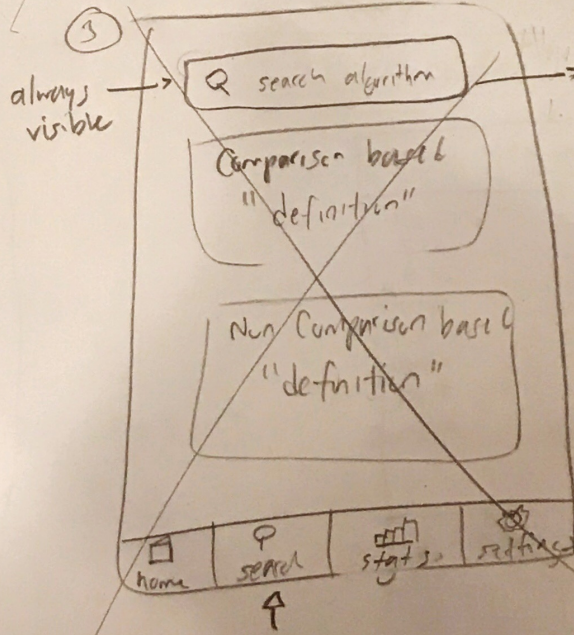 3
always
visible
search algorithm
Comparison based
"definition"
Non Comparison based
"definition"
home
search
stats.
settings